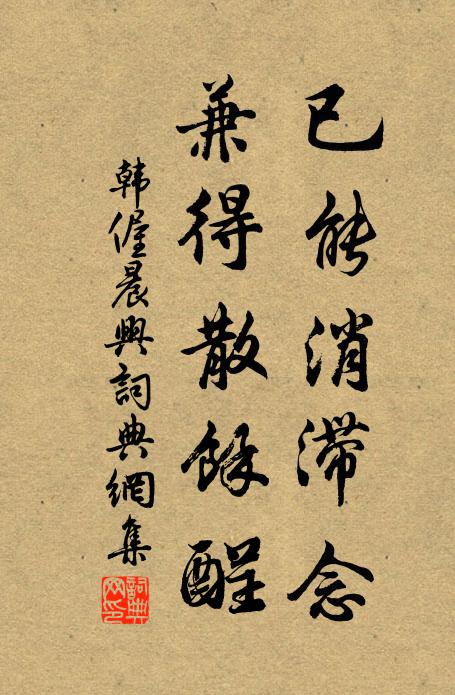 已能消滞念
兼得散餘酲
韩偓晨興詞典網集
詞典网印